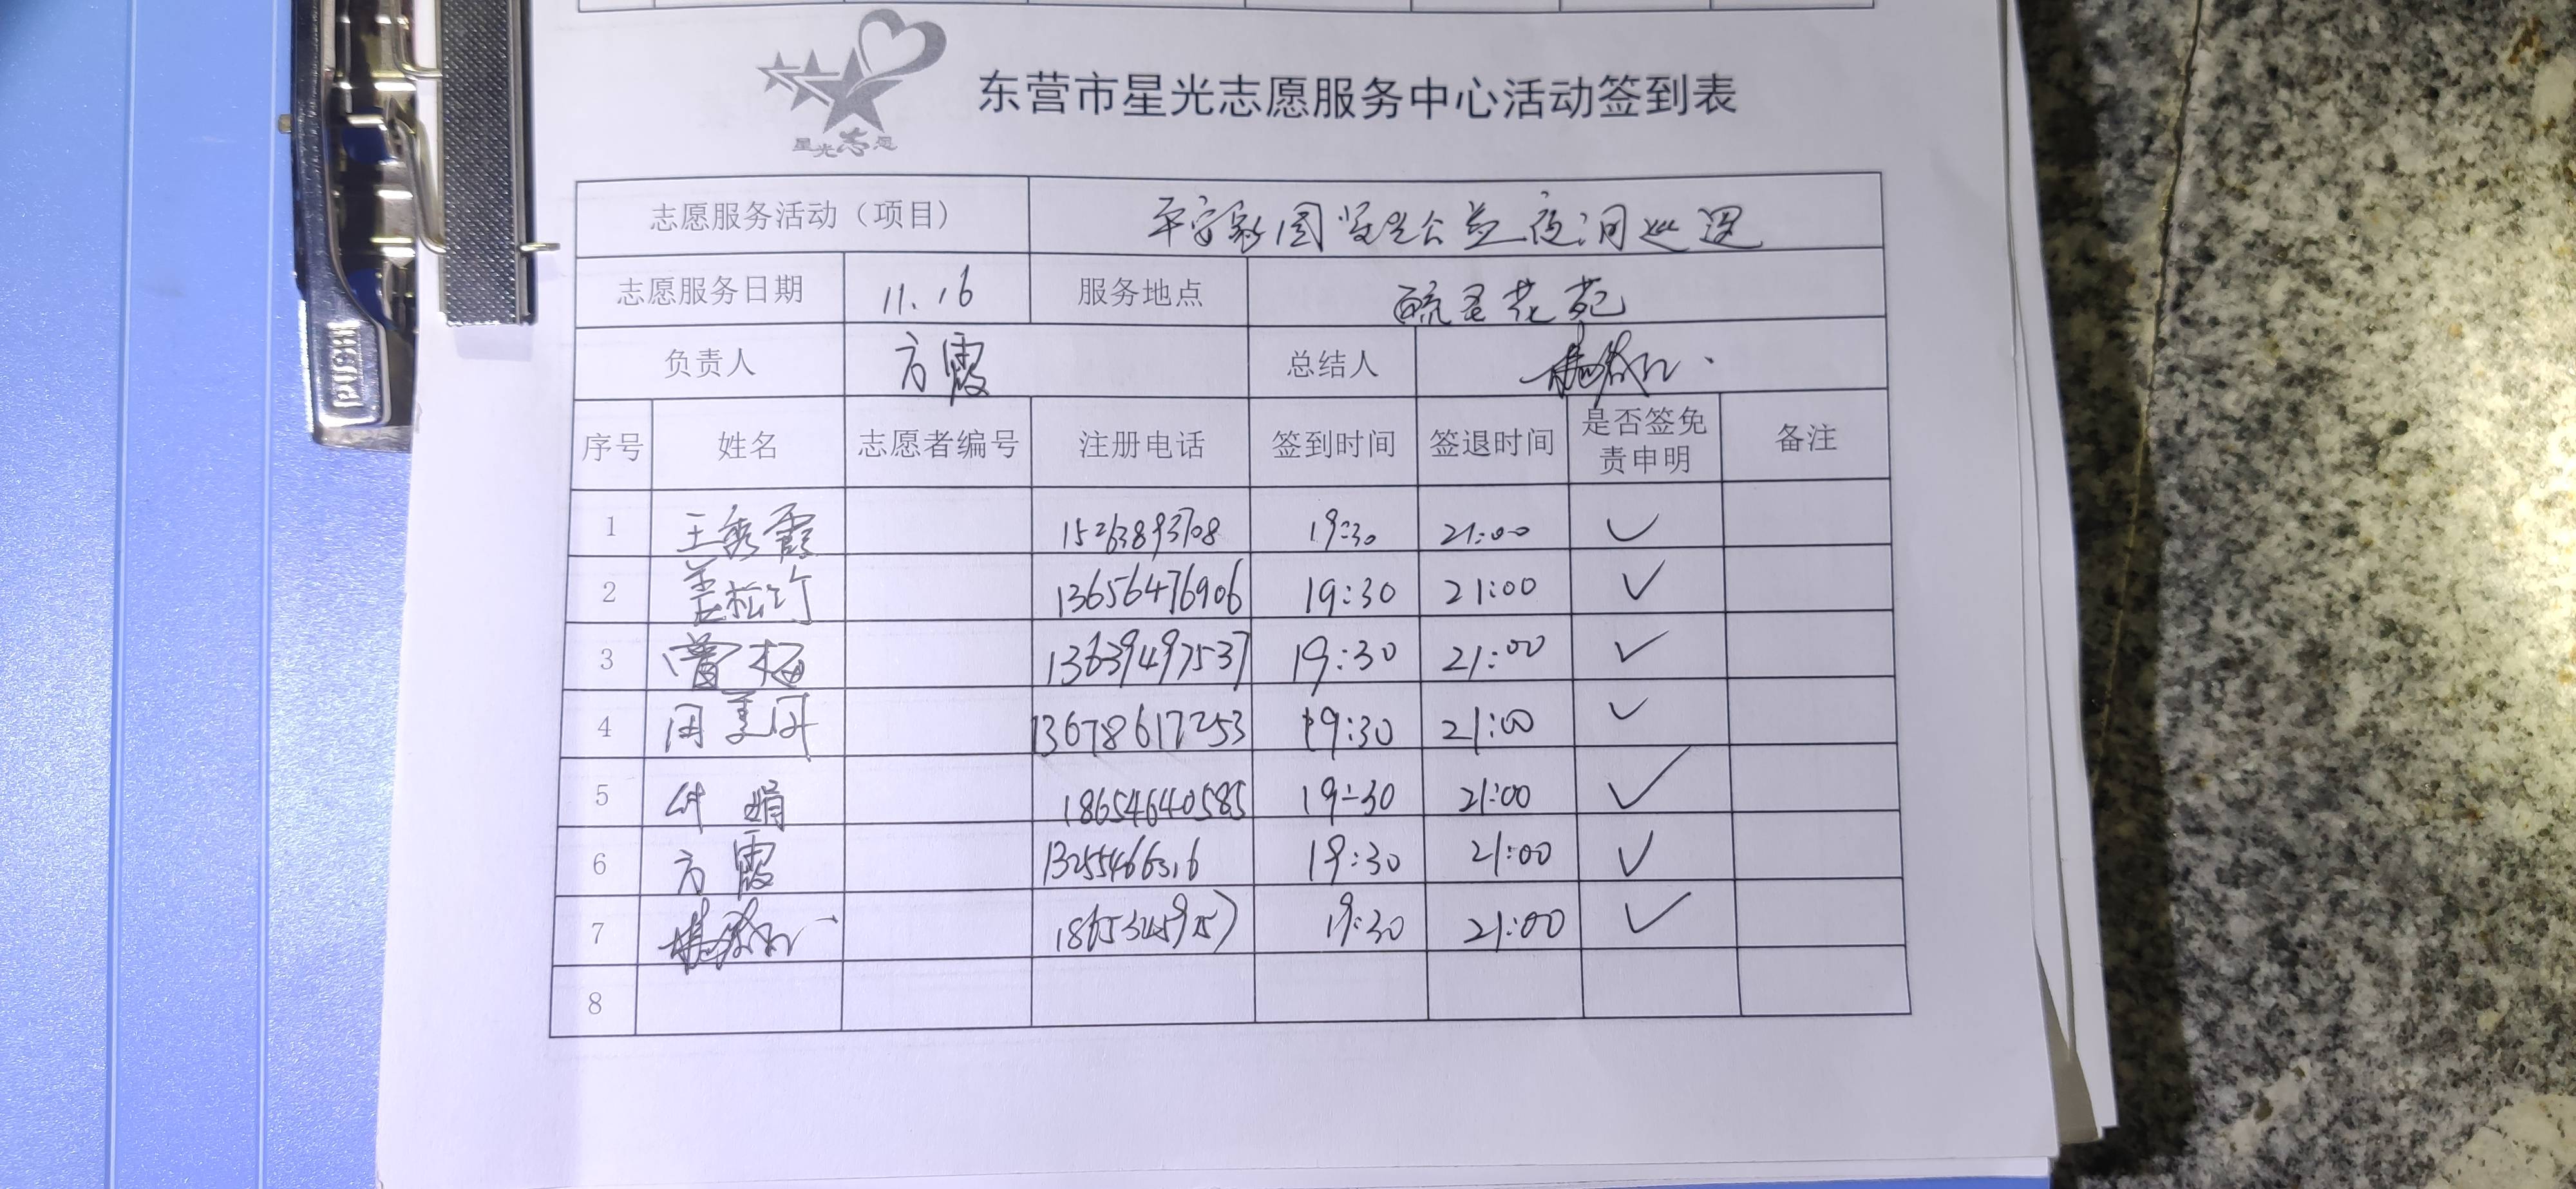 PUSH
星光志愿
东营市星光志愿服务中心活动签到表
志愿服务活动（项目） 平安家园 公益夜间巡逻
志愿服务日期 11.16 服务地点 花苑
负责人 方霞 总结人
序号 姓名 志愿者编号 注册电话 签到时间 签退时间 是否签免责申明 备注
1 王秀霞 15263893708 19:30 21:00 ✓
2 盖松竹 13656476906 19:30 21:00 ✓
3 曹梅 13639497537 19:30 21:00 ✓
4 周美丹 13678617253 19:30 21:00 ✓
5 付娟 18654640585 19:30 21:00 ✓
6 方霞 19:30 21:00 ✓
7 19:30 21:00 ✓
8